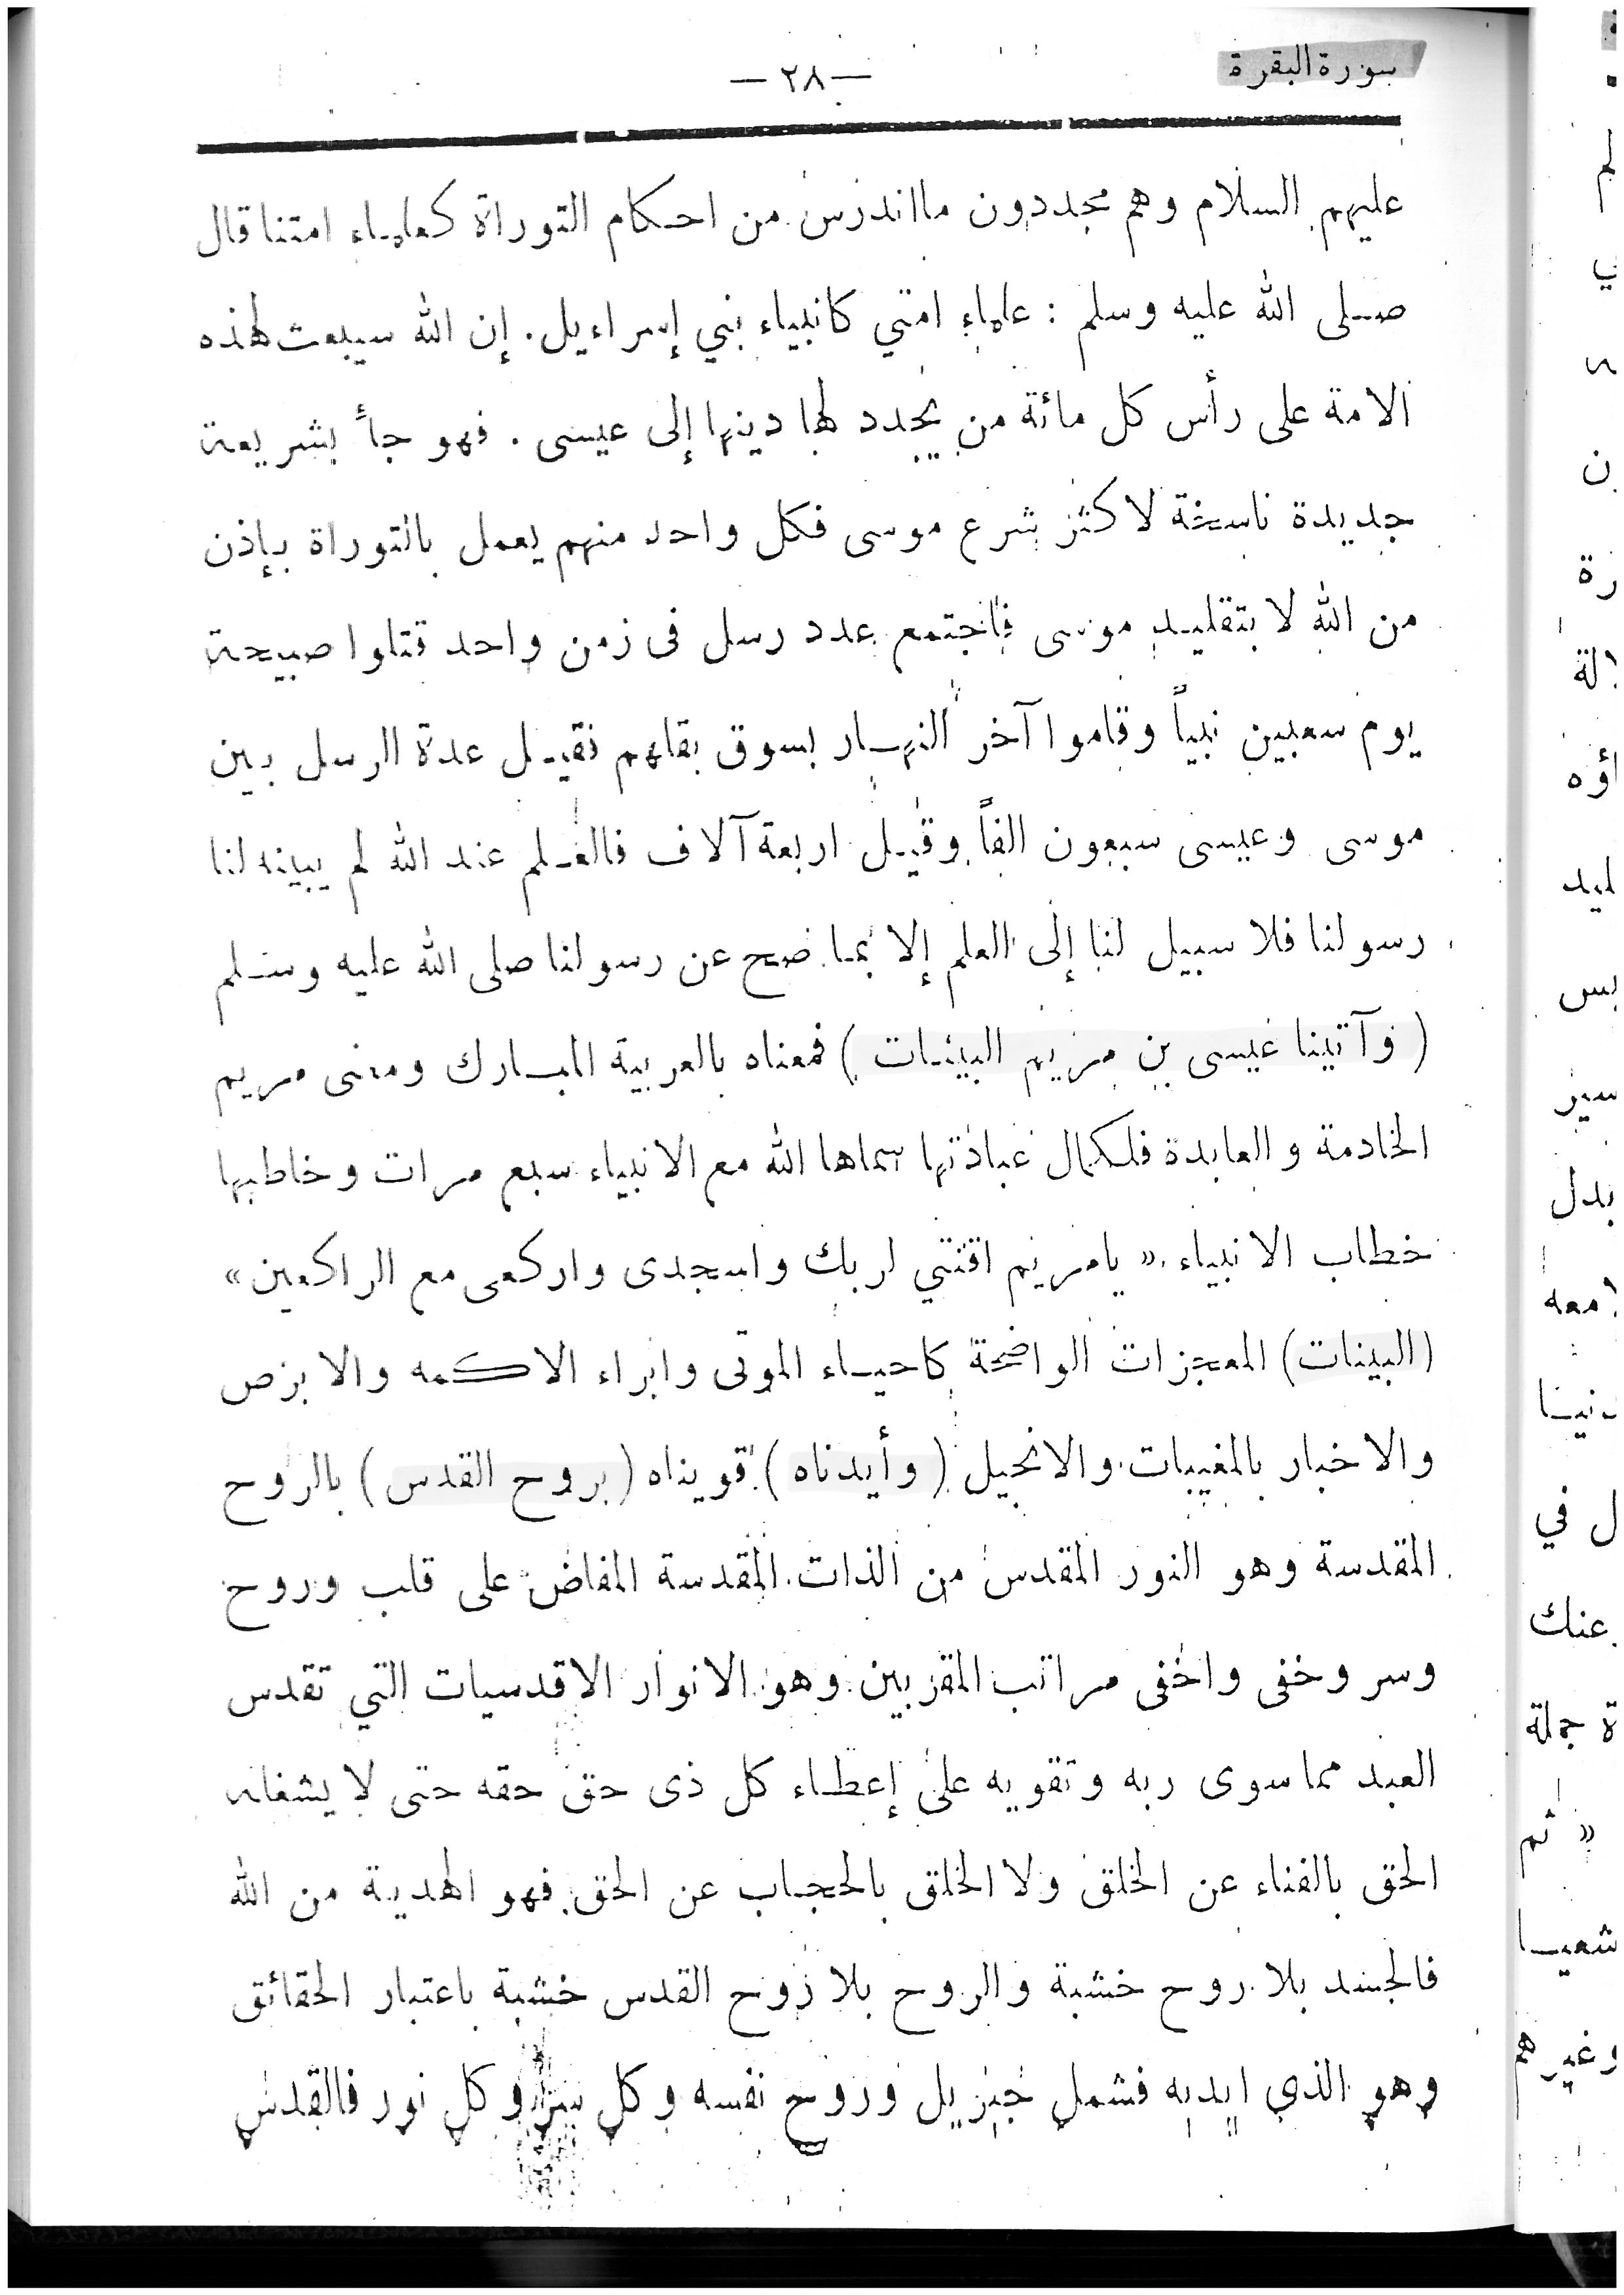 سورة البقرة
— ٢٨ —
عليهم السلام وهم مجددون مااندرس من احكام التوراة كعلماء امتنا قال
صلى الله عليه وسلم : علماء امتي كانبياء بني إسراءيل. إن الله سيبعث لهذه
الامة على رأس كل مائة من يجدد لها دينها إلى عيسى . فهو جأ بشريعة
جديدة ناسخة لاكثر شرع موسى فكل واحد منهم يعمل بالتوراة بإذن
من الله لا بتقليد موسى فاجتمع عدد رسل فى زمن واحد قتلوا صبيحة
يوم سبعين نبياً وقاموا آخر النهار بسوق بقلهم فقيل عدة الرسل بين
موسى وعيسى سبعون الفاً وقيل اربعة آلاف فالعلم عند الله لم يبينه لنا
رسولنا فلا سبيل لنا إلى العلم إلا بما صح عن رسولنا صلى الله عليه وسلم
( وآتينا عيسى بن مريم البينات ) فمعناه بالعربية المبارك ومعنى مريم
الخادمة والعابدة فلكمال عبادتها سماها الله مع الانبياء سبع مرات وخاطبها
خطاب الانبياء « يامريم اقنتي لربك واسجدى واركعى مع الراكعين »
(البينات) المعجزات الواضحة كاحياء الموتى وابراء الاكمه والابرص
والاخبار بالمغيبات والانجيل ( وأيدناه ) قويناه ( بروح القدس ) بالروح
المقدسة وهو النور المقدس من الذات المقدسة المفاض على قلب وروح
وسر وخفى واخفى مراتب المقربين وهو الانوار الاقدسيات التي تقدس
العبد مماسوى ربه وتقويه على إعطاء كل ذى حق حقه حتى لا يشغله
الحق بالفناء عن الخلق ولا الخلق بالحجاب عن الحق فهو الهدية من الله
فالجسد بلا روح خشبة والروح بلا روح القدس خشبة باعتبار الحقائق
وهو الذي ايد به فشمل جبريل وروح نفسه وكل سر وكل نور فالقدس